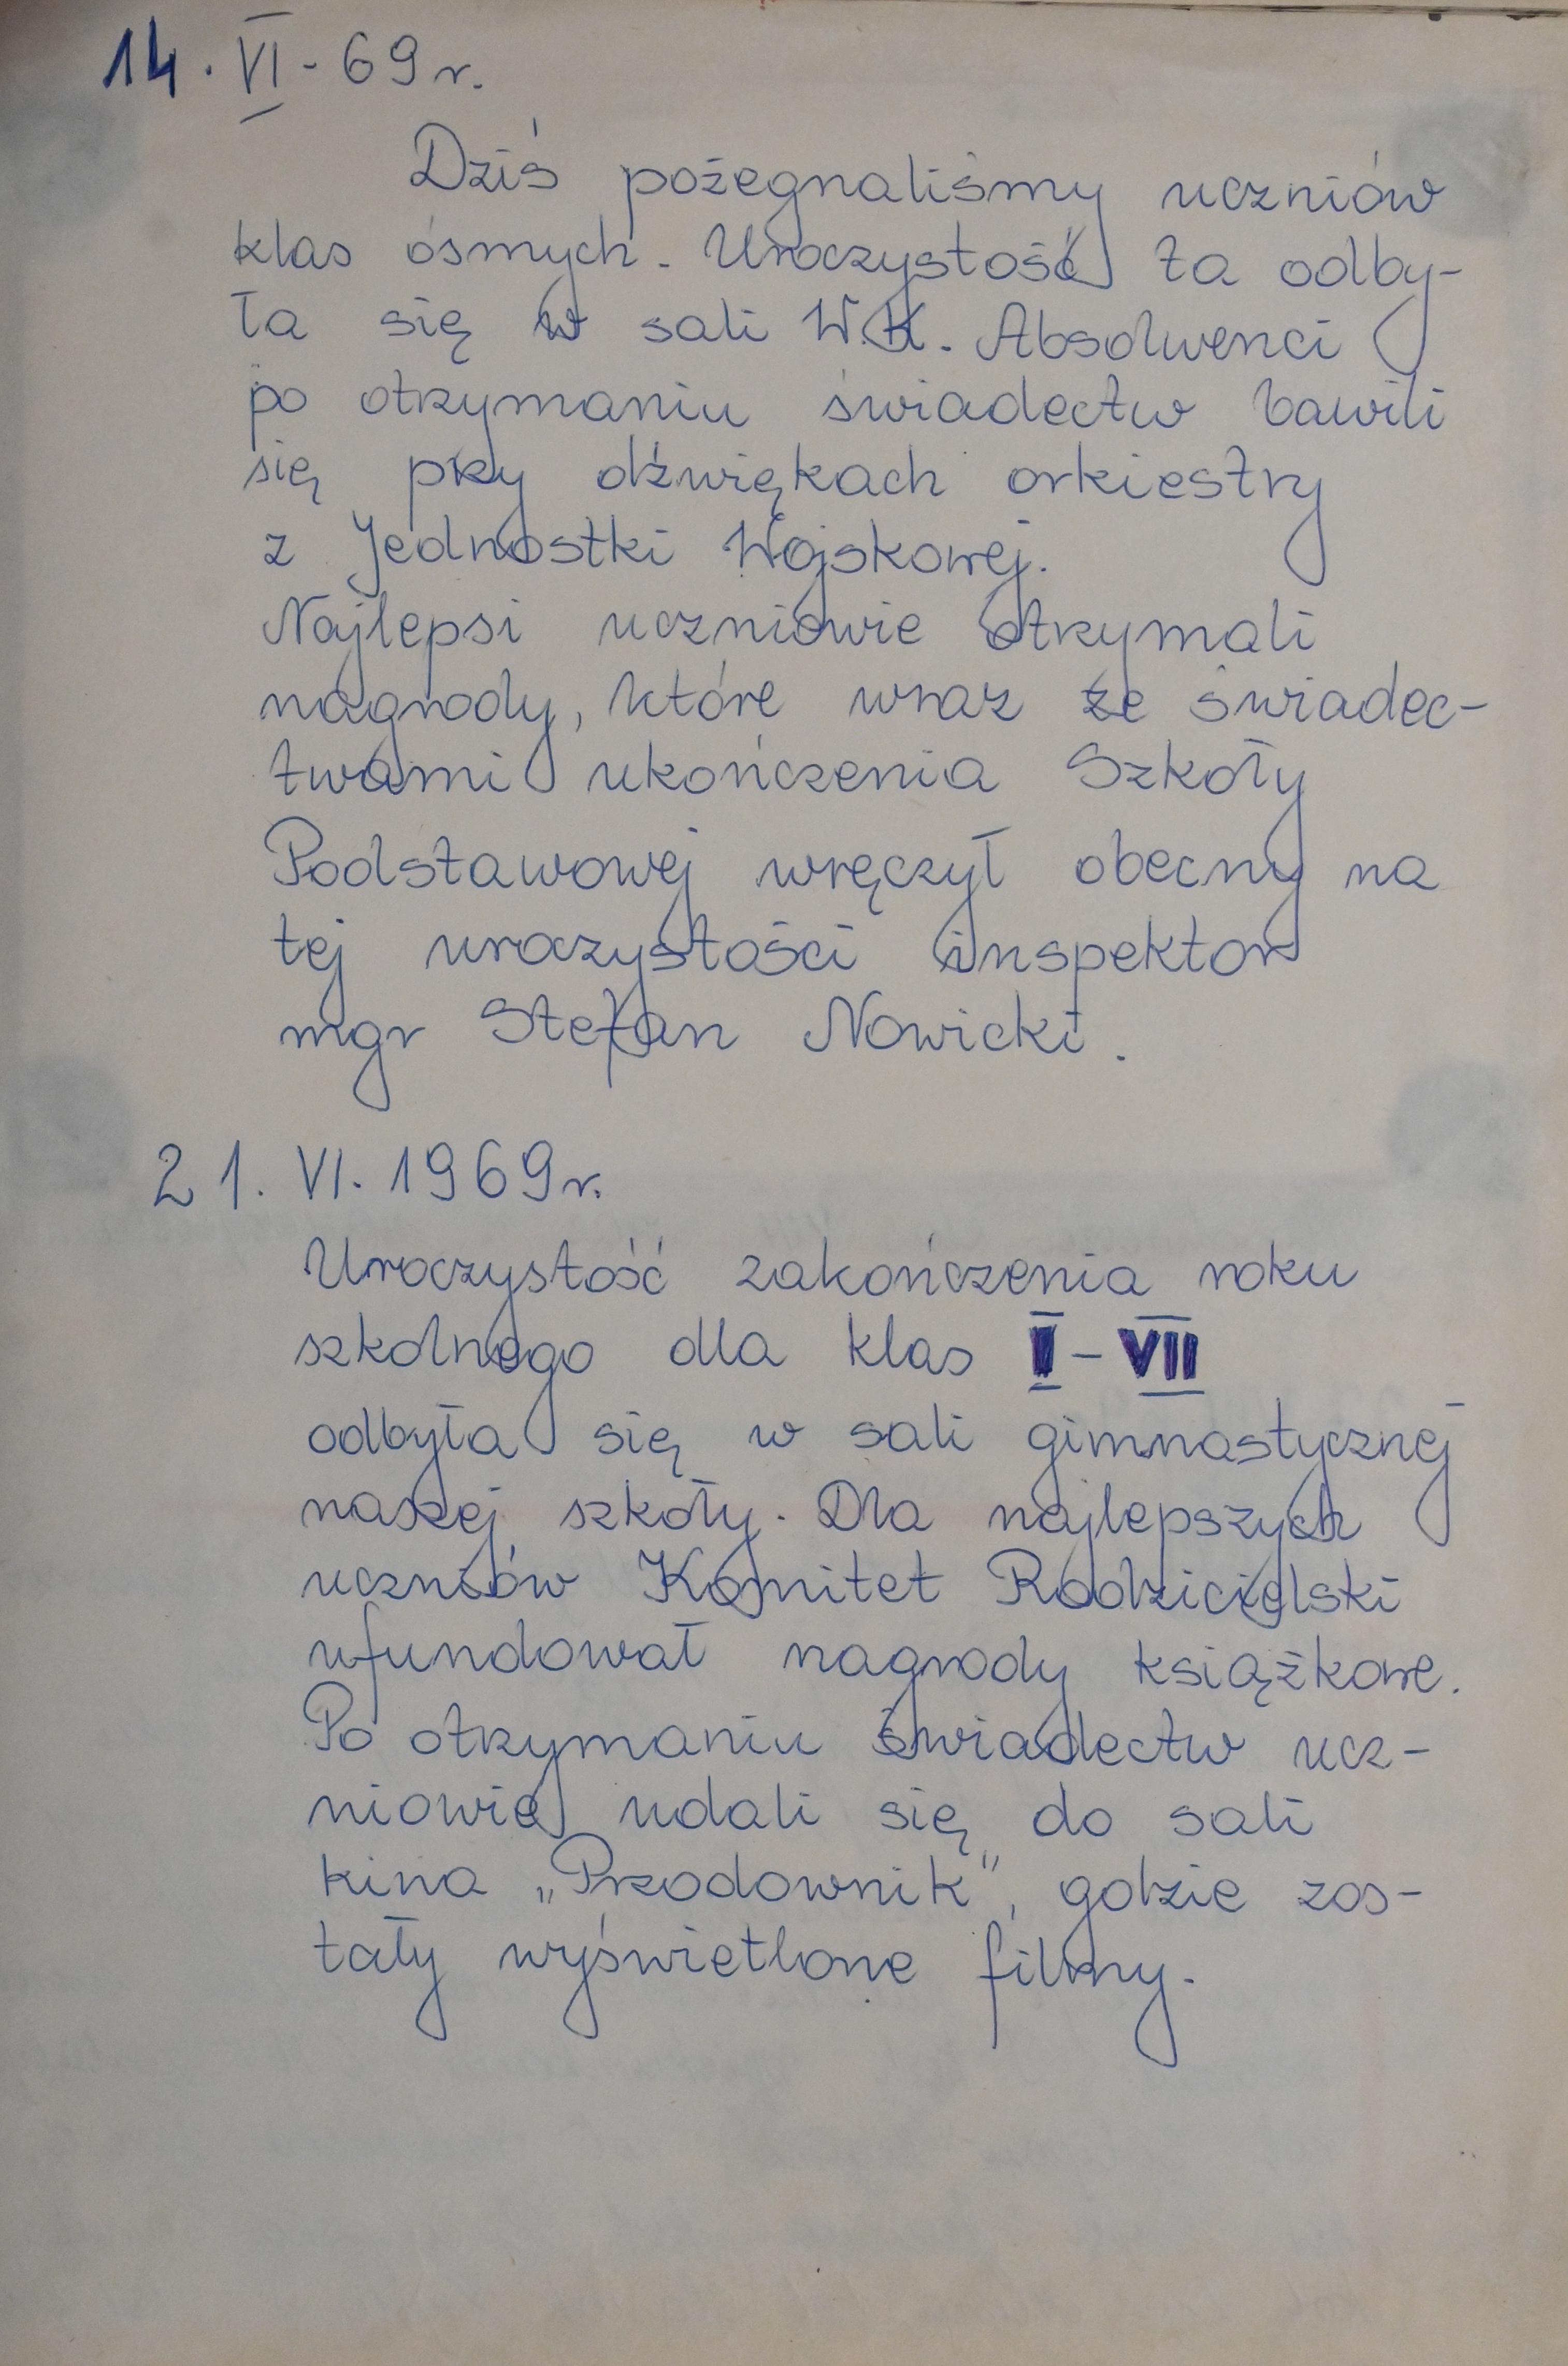 14. VI - 69 r.
Dziś pożegnaliśmy uczniów
klas ósmych. Uroczystość ta odby-
ła się w sali W.K. Absolwenci
po otrzymaniu świadectw bawili
się przy dźwiękach orkiestry
z Jednostki Wojskowej.
Najlepsi uczniowie otrzymali
nagrody, które wraz ze świadec-
twami ukończenia Szkoły
Podstawowej wręczył obecny na
tej uroczystości inspektor
mgr Stefan Nowicki.
21. VI. 1969 r.
Uroczystość zakończenia roku
szkolnego dla klas I - VII
odbyła się w sali gimnastycznej
naszej szkoły. Dla najlepszych
uczniów Komitet Rodzicielski
ufundował nagrody książkowe.
Po otrzymaniu świadectw ucz-
niowie udali się do sali
kina „Przodownik", gdzie zos-
tały wyświetlone filmy.